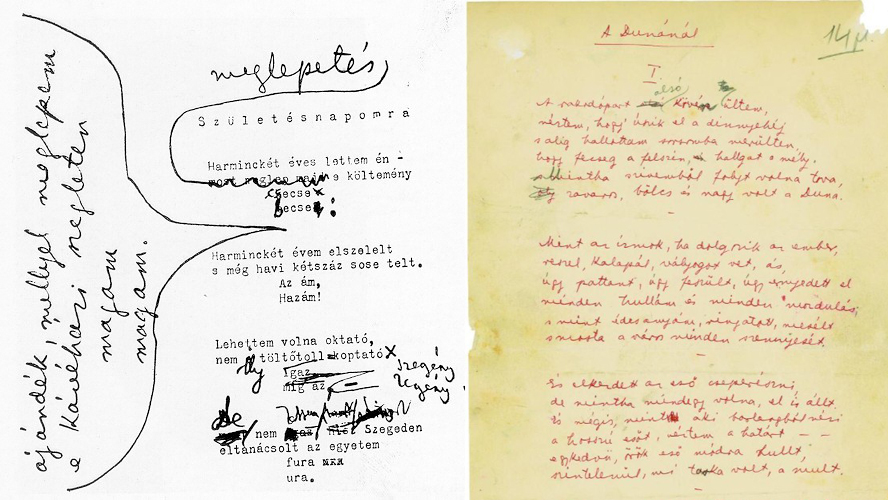 ajándék, mellyel meglepem
e kávéházi szegleten
magam
magam.
meglepetés
Születésnapomra
Harminckét éves lettem én -
e költemény
csecse
becse:
Harminckét évem elszelelt
s még havi kétszáz sose telt.
Az ám,
Hazám!
Lehettem volna oktató,
nem ily töltőtoll koptató
szegény
legény
De nem Szegeden
eltanácsolt az egyetem
fura
ura.
A Dunánál
I.
A rakodópart alsó kövén ültem,
néztem, hogy úszik el a dinnyehéj
s alig hallottam sorsomba merülten,
hogy fecseg a felszin, hallgat a mély.
Mintha szivemből folyt volna tova,
zavaros, bölcs és nagy volt a Duna.
Mint az izmok, ha dolgozik az ember,
reszel, kalapál, vályogot vet, ás,
úgy pattant, úgy feszült, úgy ernyedett el
minden hullám és minden mozdulás,
s mint édesanyám, ringatott, mesélt
s mosta a város minden szennyesét.
És elkezdett az eső cseperészni,
de mintha mindegy volna, el is állt.
És mégis, mint aki barlangból nézi
a hosszú esőt, néztem a határt – –
egykedvü, örök eső módra hullt,
szintelenül, mi tarka volt, a mult.